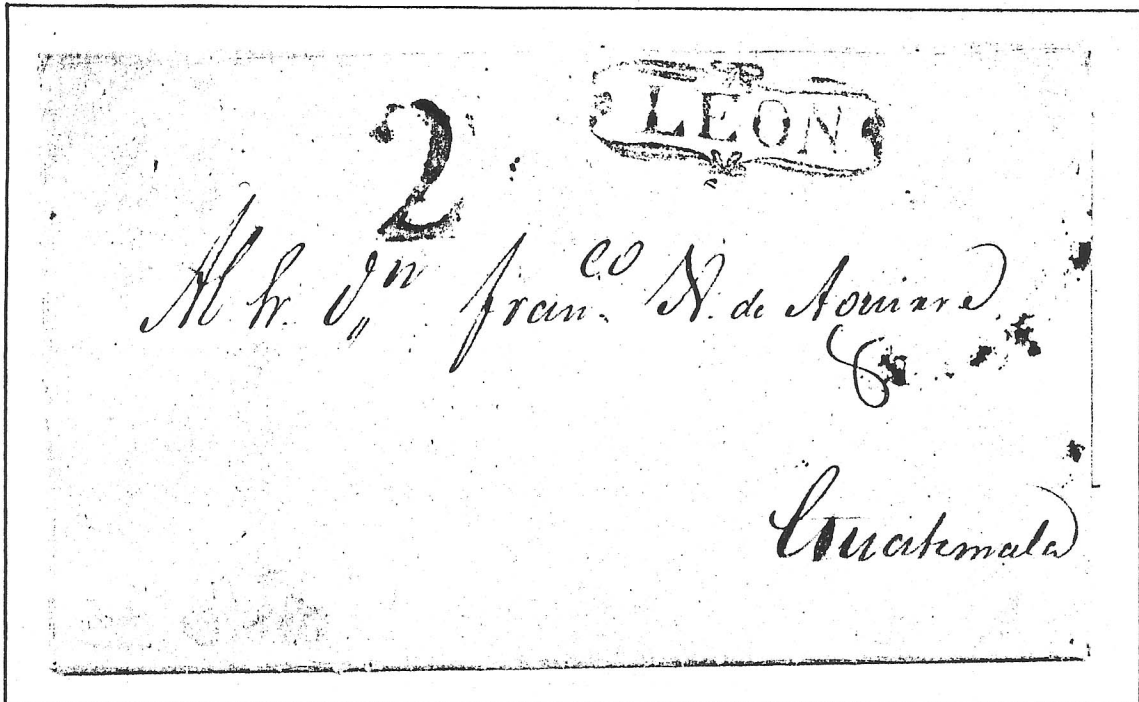 2
LEON
Al Sr. Dn Franco N. de Aguirre
Guatemala